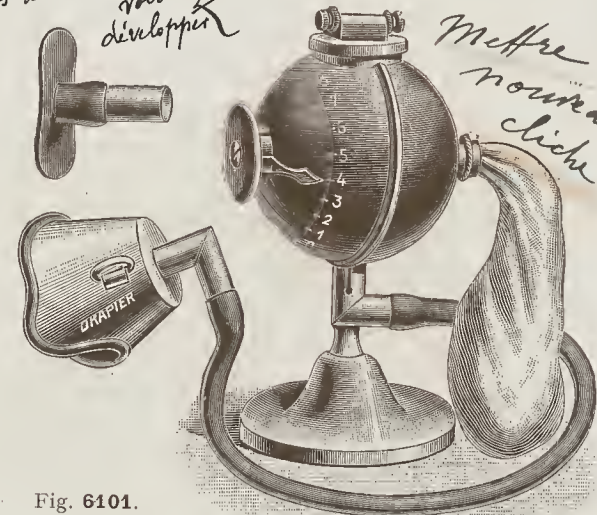 développer
Mettre
nouveau
cliché
6
5
4
3
2
1
DRAPIER
Fig. 6101.